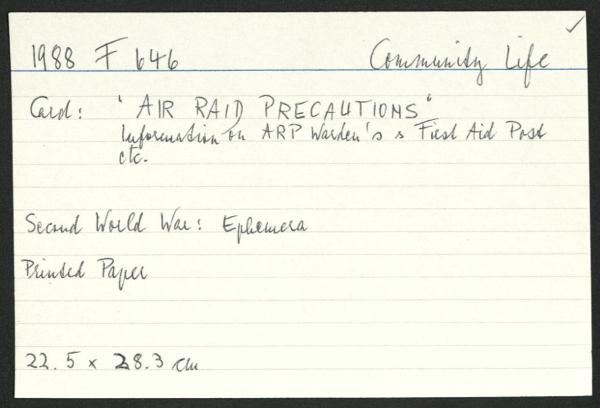 1988 F 646 Community Life
Card: "AIR RAID PRECAUTIONS"
Information on ARP Warden's & First Aid Post
etc.
Second World War: Ephemera
Printed Paper
22.5 x 28.3 cm